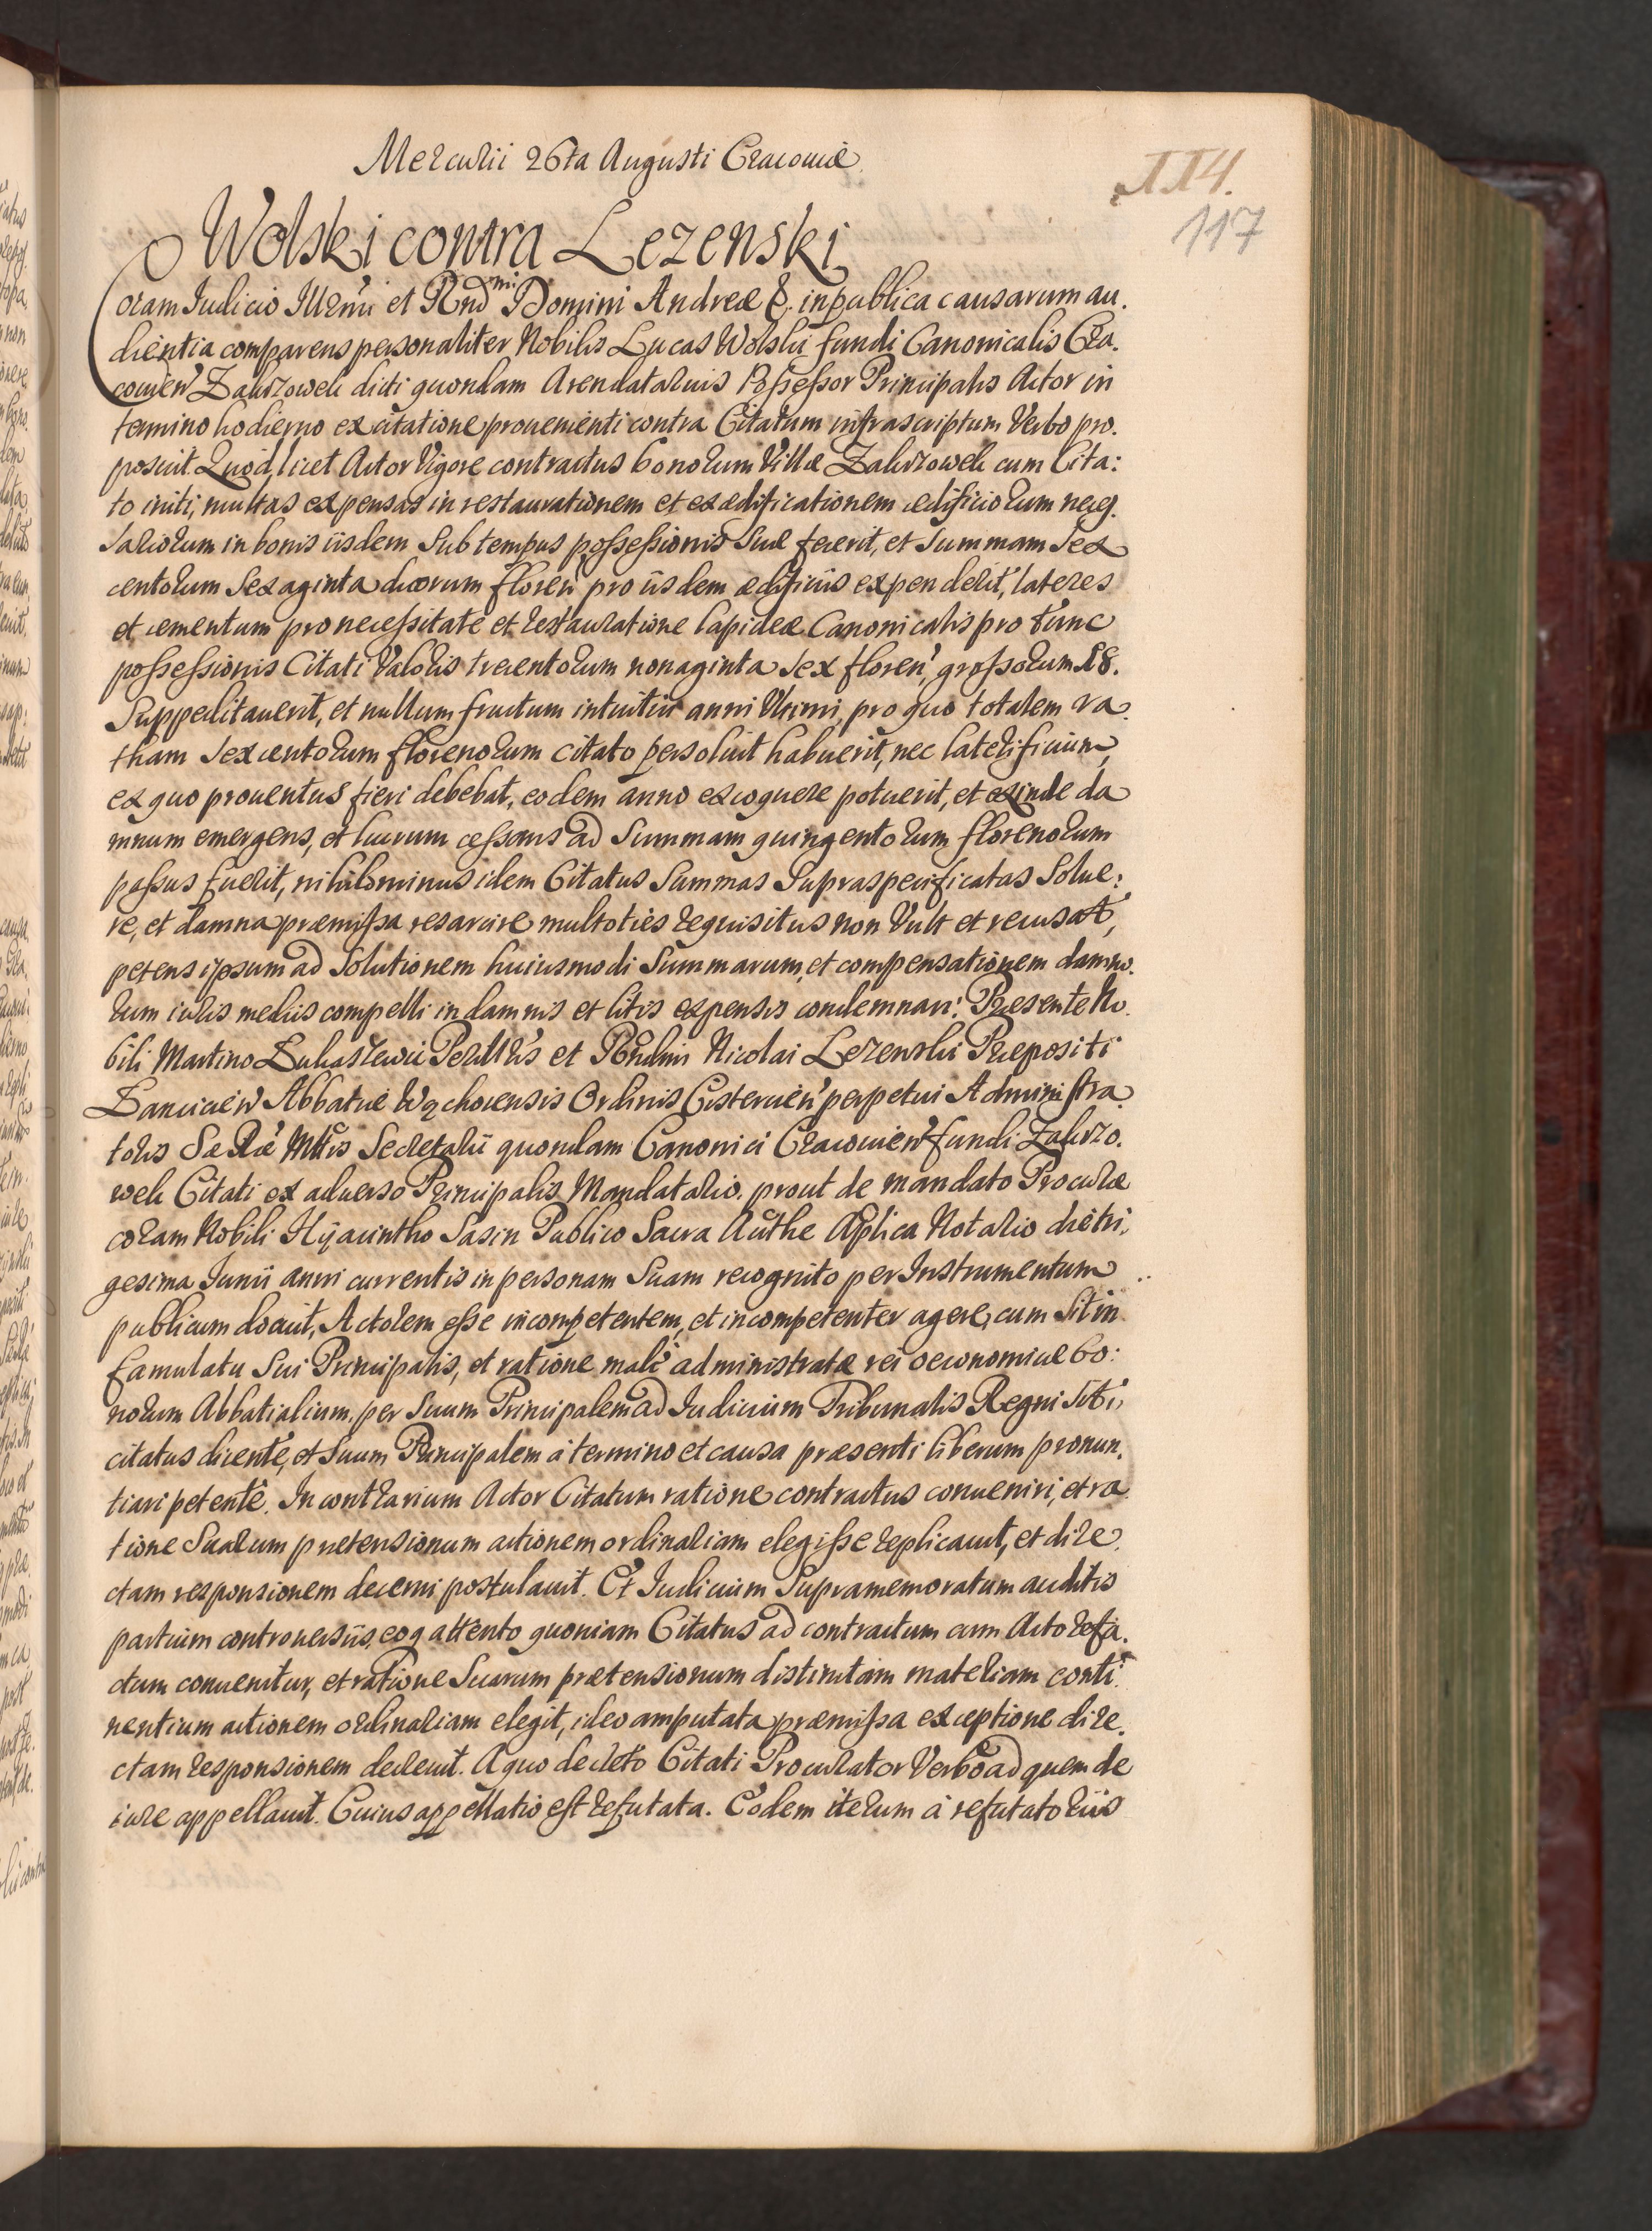 Mercurii 26ta Augusti Cracouiæ
114.
117
Wolski contra Lezenski
Coram Iudicio Illrmi et Rndmi Domini Andreæ &. in publica causarum au.
dientia comparens personaliter Nobilis Lucas Wolski fundi Canonicalis Cra.
couien' Zakrzowek dicti quondam Arendatarius Possessor Principalis Actor in
termino hodierno ex citatione prouenienti contra Citatum infrascriptum Verbo pro.
posuit. Quod, licet Actor Vigore contractus bonorum Villæ Zakrzowek cum Cita:
to initi, multas expensas in restaurationem et exædificationem ædificiorum neces.
sariorum in bonis iisdem Sub tempus possessionis Suæ fecerit, et Summam Sex
centorum Sexaginta duorum floren' pro iisdem ædificiis expenderit, lateres
et cementum pro necessitate et restauratione lapideæ Canonicalis pro tunc
possessionis Citati Valoris trecentorum nonaginta Sex floren', grossorum 18.
Suppeditauerit, et nullum fructum intuitu anni Ultimi, pro quo totalem ra
tham Sexcentorum florenorum citato persoluit habuerit, nec laterificium,
ex quo prouentus fieri debebat, eodem anno excoquere potuerit, et exinde da
mnum emergens, et lucrum cessans ad Summam quingentorum florenorum
passus fuerit, nihilominus idem Citatus Summas Supraspecificatas Solue:
re, et damna præmissa resarcire multoties requisitus non Vult et recusat,
petens ipsum ad Solutionem huiusmodi Summarum, et compensationem damno.
rum iuris mediis compelli in damnis et litis expensis condemnari. Præsente No.
bili Martino Lukaszewic Perill'ris et Rndmi Nicolai Lezenski Præpositi
Lanciciens' Abbatiæ Wąchocensis Ordinis Cistercien' perpetui Administra
toris SæRæ Mttis Secretarii quondam Canonici Cracouien' fundi Zakrzo.
wek Citati ex aduerso Principalis Mandatario. prout de mandato Procuræ
coram Nobili Hÿacintho Sasin Publico Sacra Authe Aplica Notario die tri,
gesima Iunii anni currentis in personam Suam recognito per Instrumentum
publicum docuit, Actorem esse incompetentem, et incompetenter agere, cum Sit in
famulatu Sui Principalis, et ratione malè administratæ rei oeconomicæ bo:
norum Abbatialium, per Suum Principalem ad Iudicium Tribunalis Regni Sit,
citatus dicente, et Suum Principalem à termino et causa præsenti liberum pronun.
tiari petente. In contrarium Actor Citatum ratione contractus conueniri, et ra
tione Suarum prætensionum actionem ordinariam elegisse replicauit, et dire.
ctam responsionem decerni postulauit. Et Iudicium Supramemoratum auditis
partium controuersiis, eoq attento quoniam Citatus ad contractum cum Actore fa.
ctum conuenitur, et ratione Suarum prætensionum distinctam materiam conti
nentium actionem ordinariam elegit, ideo amputata præmissa exceptione dire.
ctam responsionem decreuit. A quo decreto Citati Procurator Verbo ad quem de
iure appellauit. Cuius appellatio est refutata. Eodem iterum à refutatoriis